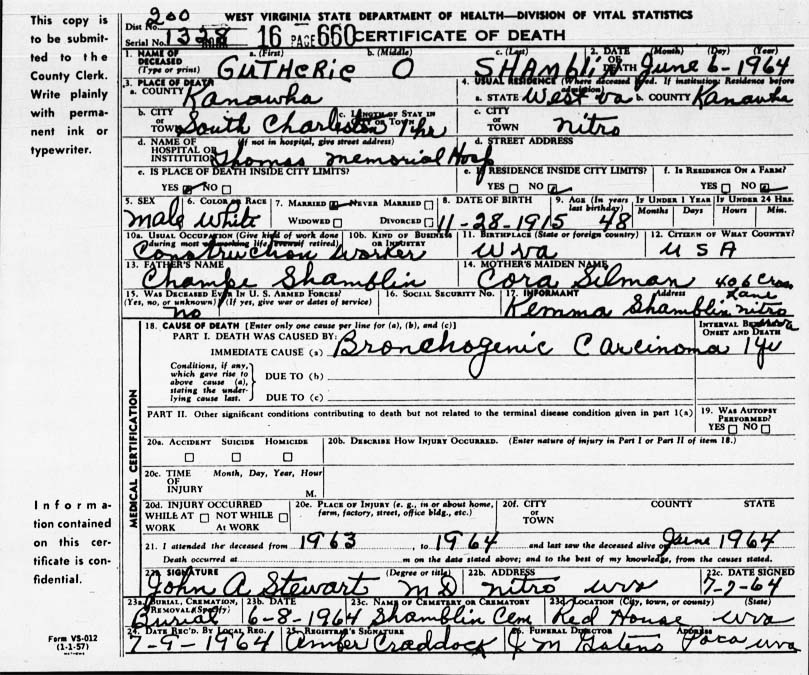 This copy is
to be submit-
ted to the
County Clerk.
Write plainly
with perma-
nent ink or
typewriter.
Informa-
tion contained
on this cer-
tificate is con-
fidential.
Form VS-012
(1-1-57)
WEST VIRGINIA STATE DEPARTMENT OF HEALTH—DIVISION OF VITAL STATISTICS
Dist No. 200
Serial No. 1328 16 PAGE 660 CERTIFICATE OF DEATH
1. NAME OF DECEASED (Type or print) a. (First) b. (Middle) c. (Last) 2. DATE OF DEATH (Month) (Day) (Year)
GUTHERIE O SHAMBLIN June 6-1964
3. PLACE OF DEATH 4. USUAL RESIDENCE (Where deceased lived. If institution: Residence before admission)
a. COUNTY Kanawha a. STATE West va b. COUNTY Kanawha
b. CITY OR TOWN South Charleston c. LENGTH OF STAY IN CITY OR TOWN c. CITY OR TOWN nitro
d. NAME OF HOSPITAL OR INSTITUTION (If not in hospital, give street address) Thomas memorial Hosp d. STREET ADDRESS
e. IS PLACE OF DEATH INSIDE CITY LIMITS? e. IF RESIDENCE INSIDE CITY LIMITS? f. IS RESIDENCE ON A FARM?
YES NO YES NO YES NO
5. SEX 6. COLOR OR RACE 7. MARRIED NEVER MARRIED 8. DATE OF BIRTH 9. AGE (In years last birthday) IF UNDER 1 YEAR IF UNDER 24 HRS.
Male White WIDOWED DIVORCED 11-28-1915 48 Months Days Hours Min.
10a. USUAL OCCUPATION (Give kind of work done during most of working life, even if retired) 10b. KIND OF BUSINESS OR INDUSTRY 11. BIRTHPLACE (State or foreign country) 12. CITIZEN OF WHAT COUNTRY?
Construction Worker Wva USA
13. FATHER'S NAME 14. MOTHER'S MAIDEN NAME
Champe Shamblin Cora Silman 406 Cross
15. WAS DECEASED EVER IN U. S. ARMED FORCES? 16. SOCIAL SECURITY NO. 17. INFORMANT Address Lane
(Yes, no, or unknown) (If yes, give war or dates of service) no Kemma Shamblin nitro
18. CAUSE OF DEATH [Enter only one cause per line for (a), (b), and (c)] INTERVAL BETWEEN ONSET AND DEATH
PART I. DEATH WAS CAUSED BY:
IMMEDIATE CAUSE (a) Bronchogenic Carcinoma 1 yr
Conditions, if any, which gave rise to above cause (a), stating the underlying cause last.
DUE TO (b)
DUE TO (c)
PART II. Other significant conditions contributing to death but not related to the terminal disease condition given in part 1(a) 19. WAS AUTOPSY PERFORMED?
YES NO
MEDICAL CERTIFICATION
20a. ACCIDENT SUICIDE HOMICIDE 20b. DESCRIBE HOW INJURY OCCURRED. (Enter nature of injury in Part I or Part II of item 18.)
20c. TIME OF INJURY Month, Day, Year, Hour M.
20d. INJURY OCCURRED WHILE AT WORK NOT WHILE AT WORK 20e. PLACE OF INJURY (e. g., in or about home, farm, factory, street, office bldg., etc.) 20f. CITY OR TOWN COUNTY STATE
21. I attended the deceased from 1963, to 1964 and last saw the deceased alive on June 1964
Death occurred at m on the date stated above; and to the best of my knowledge, from the causes stated.
22a. SIGNATURE (Degree or title) 22b. ADDRESS 22c. DATE SIGNED
John A Stewart MD nitro wva 7-7-64
23a. BURIAL, CREMATION, REMOVAL (Specify) 23b. DATE 23c. NAME OF CEMETERY OR CREMATORY 23d. LOCATION (City, town, or county) (State)
Burial 6-8-1964 Shamblin Cem Red House wva
24. DATE REC'D. BY LOCAL REG. 25. REGISTRAR'S SIGNATURE 26. FUNERAL DIRECTOR Address
7-9-1964 Amber Craddock J M Gatens Poca wva